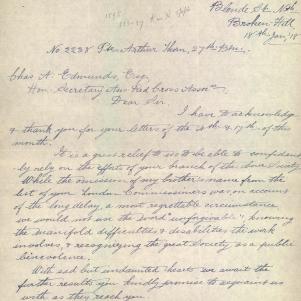 Blende St. Nth
Broken Hill
18th Jan. '18
No. 2238 Pte. Arthur Khan, 27th Bn.
Chas A. Edmunds, Esq.
Hon. Secretary Aus. Red Cross Assn
Dear Sir,
I have to acknowledge
& thank you for your letters of the & 17th of this
month.
It is a great relief to us to be able to confident-
ly rely on the efforts of your branch of the Society
While the omission of my brother's name from the
list of your London Commissioners was, on account
of the long delay, a most regrettable circumstance
we would not use the word "unforgivable", knowing
the manifold difficulties & disabilities the work
involves, & recognizing the great Society as a public
benevolence.
With sad but undaunted hearts we await the
further results you kindly promise to acquaint us
with as they reach you.